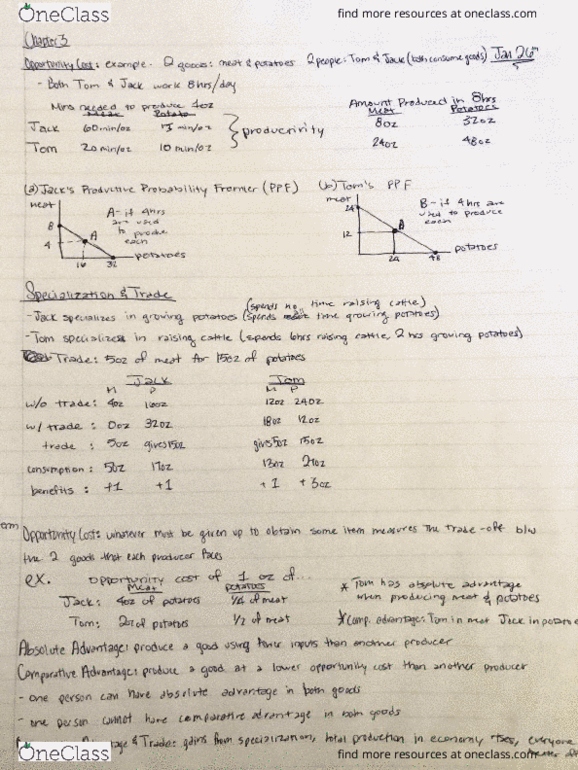 OneClass
find more resources at oneclass.com
Chapter 3
Opportunity Cost: example - 2 goods: meat & potatoes 2 people: Tom & Jack (both consume goods) Jan 26th
- Both Tom & Jack work 8hrs/day
Mins needed to produce 4oz
Meat Potato
Jack 60min/oz 15 min/oz
Tom 20min/oz 10 min/oz
} productivity
Amount Produced in 8hrs
Meat Potatoes
8oz 32oz
24oz 48oz
(a) Jack's Productive Probability Fronier (PPF)
meat
8
4
A
16 32
potatoes
A - if 4hrs
are used
to produce
each
(b) Tom's PPF
meat
24
12
B
24 48
potatoes
B - if 4 hrs are
used to produce
each
Specialization & Trade
(spends no time raising cattle)
- Jack specializes in growing potatoes (spends time growing potatoes)
- Tom specializes in raising cattle (spends 6hrs raising cattle, 2 hrs growing potatoes)
Trade: 5oz of meat for 15oz of potatoes
Jack Tom
M P M P
w/o trade: 4oz 16oz 12oz 24oz
w/ trade: 0oz 32oz 18oz 12oz
trade: 5oz gives 15oz gives 5oz 15oz
consumption: 5oz 17oz 13oz 27oz
benefits: +1 +1 +1 +3oz
Opportunity Cost: whatever must be given up to obtain some item measures the trade-off b/w
the 2 goods that each producer faces
ex. opportunity cost of 1 oz of...
Meat potatoes
Jack: 4oz of potatoes 1/4 of meat
Tom: 2oz of potatoes 1/2 of meat
* Tom has absolute advantage
when producing meat & potatoes
* Comp. advantage: Tom in meat Jack in potatoe
Absolute Advantage: produce a good using fewer inputs than another producer
Comparative Advantage: produce a good at a lower opportunity cost than another producer
- one person can have absolute advantage in both goods
- one person cannot have comparative advantage in both goods
& Trade: gains from specialization, total production in economy rises, everyone
OneClass
find more resources at oneclass.com